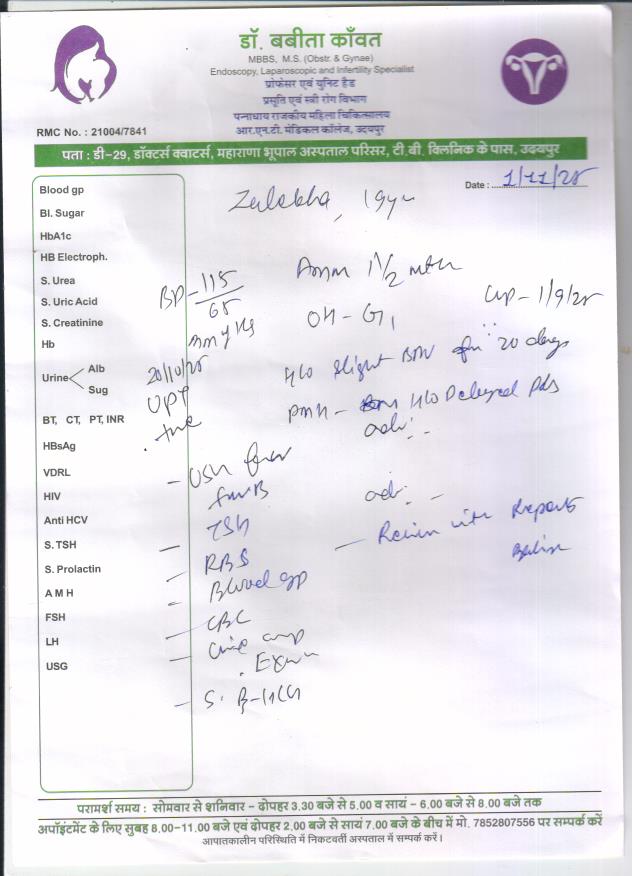 डॉ. बबीता काँवत
MBBS, M.S. (Obstr. & Gynae)
Endoscopy, Laparoscopic and Infertility Specialist
प्रोफेसर एवं यूनिट हैड
प्रसूति एवं स्त्री रोग विभाग
पन्नाधाय राजकीय महिला चिकित्सालय
आर.एन.टी. मेडिकल कॉलेज, उदयपुर
RMC No. : 21004/7841
पता : डी-29, डॉक्टर्स क्वाटर्स, महाराणा भूपाल अस्पताल परिसर, टी.बी. क्लिनिक के पास, उदयपुर
Date : 1/11/25
Blood gp
Bl. Sugar
HbA1c
HB Electroph.
S. Urea
S. Uric Acid
S. Creatinine
Hb
Urine
Alb
Sug
BT, CT, PT, INR
HBsAg
VDRL
HIV
Anti HCV
S. TSH
S. Prolactin
A M H
FSH
LH
USG
19yr
BP - 115
68
1 1/2
1/9/25
OH - G1
20/10/25
H/O slight for 20 days
UPT
H/O Delayed Pds
adv:-
- USG
adv: -
TSH
- Review with Reports
- RBS
- Blood gp
- CBC
- S. B-HCG
परामर्श समय : सोमवार से शनिवार - दोपहर 3.30 बजे से 5.00 व सायं - 6.00 बजे से 8.00 बजे तक
अपॉइंटमेंट के लिए सुबह 8.00-11.00 बजे एवं दोपहर 2.00 बजे से सायं 7.00 बजे के बीच में मो. 7852807556 पर सम्पर्क करें
आपातकालीन परिस्थिति में निकटवर्ती अस्पताल में सम्पर्क करें।